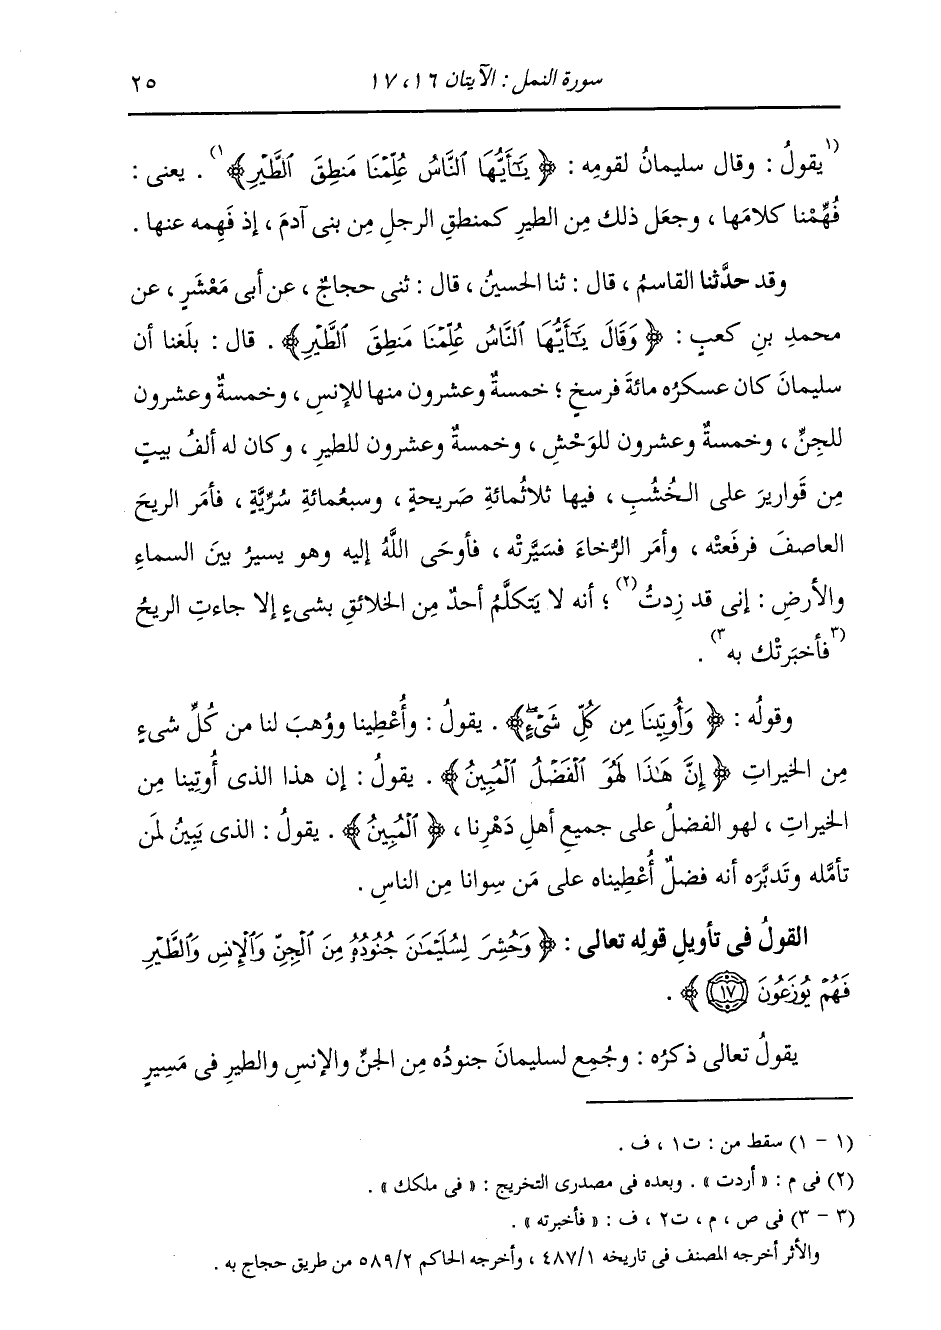 سورة النمل : الآيتان ١٦ ، ١٧
٢٥
(١يقولُ : وقال سليمانُ لقومِه : ﴿ يَٰٓأَيُّهَا ٱلنَّاسُ عُلِّمْنَا مَنطِقَ ٱلطَّيْرِ ﴾١) . يعنى :
فُهِّمْنا كلامَها ، وجعَل ذلك مِن الطيرِ كمنطقِ الرجلِ مِن بنى آدمَ ، إذ فَهِمه عنها .
وقد حدَّثنا القاسمُ ، قال : ثنا الحسينُ ، قال : ثنى حجاجٌ ، عن أبى مَعْشَرٍ ، عن
محمدِ بنِ كعبٍ : ﴿ وَقَالَ يَٰٓأَيُّهَا ٱلنَّاسُ عُلِّمْنَا مَنطِقَ ٱلطَّيْرِ ﴾ . قال : بلَغنا أن
سليمانَ كان عسكرُه مائةَ فرسخٍ ؛ خمسةٌ وعشرون منها للإنسِ ، وخمسةٌ وعشرون
للجنِّ ، وخمسةٌ وعشرون للوَحْشِ ، وخمسةٌ وعشرون للطيرِ ، وكان له ألفُ بيتٍ
مِن قَواريرَ على الخُشُبِ ، فيها ثلاثُمائةِ صَريحةٍ ، وسبعُمائةِ سُرِّيَّةٍ ، فأمَر الريحَ
العاصفَ فرفَعتْه ، وأمَر الرُّخاءَ فسَيَّرتْه ، فأوحَى اللَّهُ إليه وهو يسيرُ بينَ السماءِ
والأرضِ : إنى قد زِدتُ(٢) ؛ أنه لا يَتكلَّمُ أحدٌ مِن الخلائقِ بشىءٍ إلا جاءتِ الريحُ
(٣فأخبَرتْك به٣) .
وقولُه : ﴿ وَأُوتِينَا مِن كُلِّ شَىْءٍ ۖ﴾ . يقولُ : وأُعْطِينا ووُهبَ لنا من كُلِّ شىءٍ
مِن الخيراتِ ﴿ إِنَّ هَٰذَا لَهُوَ ٱلْفَضْلُ ٱلْمُبِينُ ﴾ . يقولُ : إن هذا الذى أُوتِينا مِن
الخيراتِ ، لهو الفضلُ على جميعِ أهلِ دَهْرِنا ، ﴿ ٱلْمُبِينُ ﴾ . يقولُ : الذى يَبِينُ لمَن
تأمَّله وتَدبَّرَه أنه فضلٌ أُعْطِيناه على مَن سِوانا مِن الناسِ .
القولُ فى تأويلِ قولِه تعالى : ﴿ وَحُشِرَ لِسُلَيْمَٰنَ جُنُودُهُۥ مِنَ ٱلْجِنِّ وَٱلْإِنسِ وَٱلطَّيْرِ
فَهُمْ يُوزَعُونَ ١٧ ﴾ .
يقولُ تعالى ذكرُه : وجُمِع لسليمانَ جنودُه مِن الجنِّ والإنسِ والطيرِ فى مَسِيرٍ
(١ - ١) سقط من : ت١ ، ف .
(٢) فى م : « أردت » . وبعده فى مصدرى التخريج : « فى ملكك » .
(٣ - ٣) فى ص ، م ، ت٢ ، ف : « فأخبرته » .
والأثر أخرجه المصنف فى تاريخه ٤٨٧/١ ، وأخرجه الحاكم ٥٨٩/٢ من طريق حجاج به .